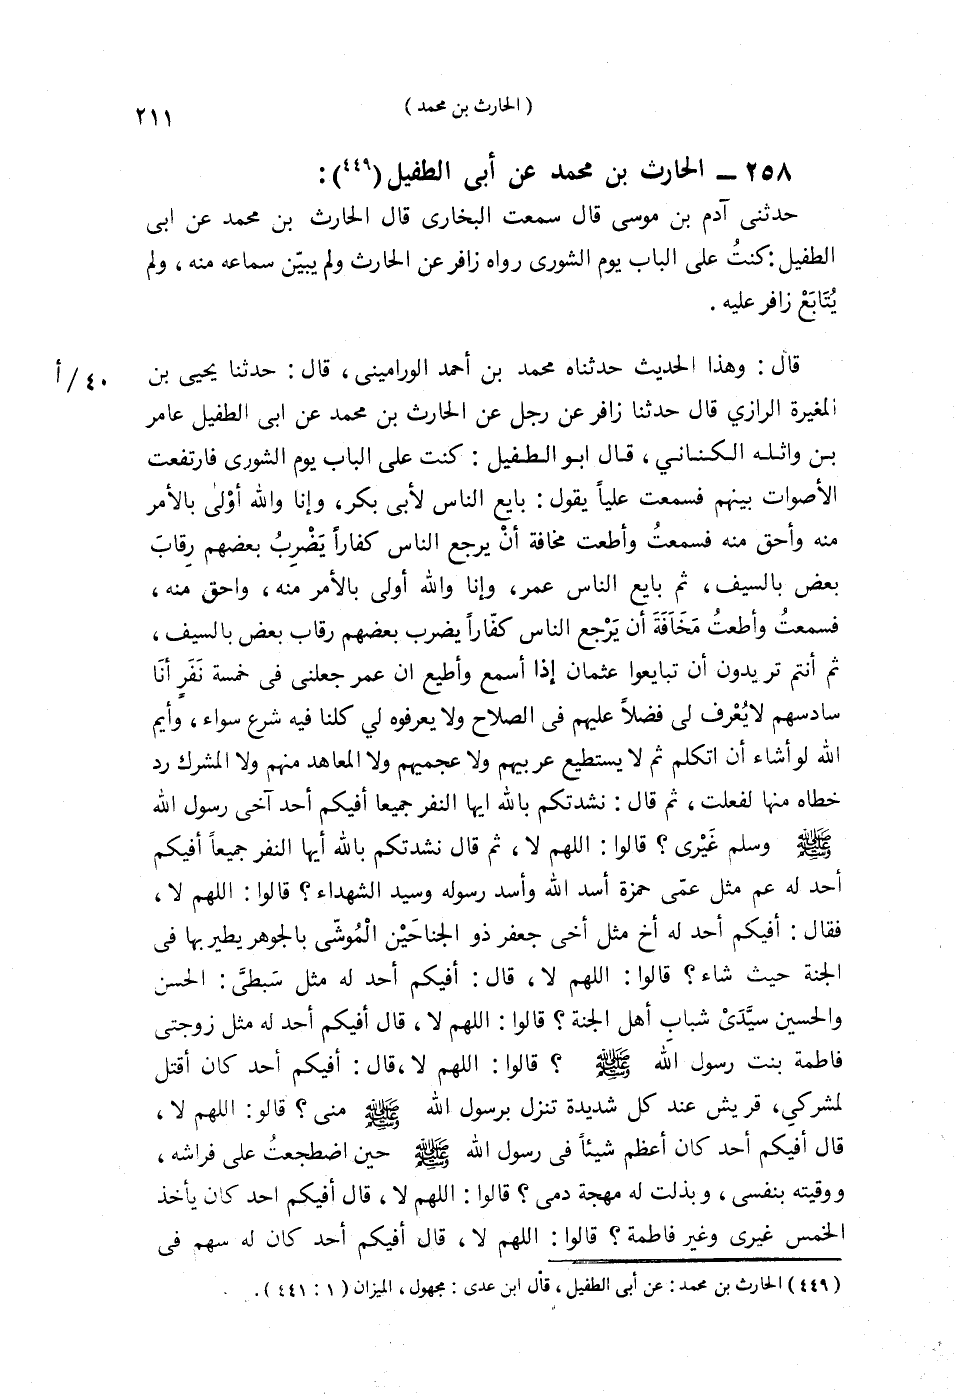 ٢١١
( الحارث بن محمد )
٢٥٨ ــ الحارث بن محمد عن أبى الطفيل (٤٤٩) :
حدثنى آدم بن موسى قال سمعت البخارى قال الحارث بن محمد عن ابى
الطفيل : كنتُ على الباب يوم الشورى رواه زافر عن الحارث ولم يبيّن سماعه منه ، ولم
يُتَابَعْ زافر عليه .
قال : وهذا الحديث حدثناه محمد بن أحمد الورامينى ، قال : حدثنا يحيى بن
٤٠/أ
المغيرة الرازي قال حدثنا زافر عن رجل عن الحارث بن محمد عن ابى الطفيل عامر
بن واثله الكناني ، قال ابو الطفيل : كنت على الباب يوم الشورى فارتفعت
الأصوات بينهم فسمعت علياً يقول : بايع الناس لأبى بكر، وإنا والله أوْلىٰ بالأمر
منه وأحق منه فسمعتُ وأطعت مخافة أنْ يرجع الناس كفاراً يَضْرِبُ بعضهم رِقابَ
بعض بالسيف ، ثم بايع الناس عمر، وإنا والله أولى بالأمر منه ، واحق منه ،
فسمعتُ وأطعتُ مَخَافَةَ أن يَرْجع الناس كفّاراً يضرب بعضهم رقاب بعض بالسيف ،
ثم أنتم تريدون أن تبايعوا عثمان إذا أسمع وأطيع ان عمر جعلنى فى خمسة نَفَرٍ أنَا
سادسهم لايُعْرف لى فضلاً عليهم فى الصلاح ولا يعرفوه لي كلنا فيه شرع سواء ، وأيم
الله لو أشاء أن اتكلم ثم لا يستطيع عربيهم ولا عجميهم ولا المعاهد منهم ولا المشرك رد
خطاه منها لفعلت ، ثم قال : نشدتكم بالله ايها النفر جميعا أفيكم أحد آخى رسول الله
ﷺ وسلم غَيْرى ؟ قالوا : اللهم لا ، ثم قال نشدتكم بالله أيها النفر جميعاً أفيكم
أحد له عم مثل عمّى حمزة أسد الله وأسد رسوله وسيد الشهداء ؟ قالوا : اللهم لا ،
فقال : أفيكم أحد له أخ مثل أخى جعفر ذو الجناحَيْن الْمُوشّى بالجوهر يطير بها فى
الجنة حيث شاء ؟ قالوا : اللهم لا ، قال : أفيكم أحد له مثل سَبطىَّ : الحسن
والحسين سيَّدَىْ شبابِ أهل الجنة ؟ قالوا : اللهم لا ، قال أفيكم أحد له مثل زوجتى
فاطمة بنت رسول الله ﷺ ؟ قالوا : اللهم لا ،قال : أفيكم أحد كان أقتل
لمشركي، قريش عند كل شديدة تنزل برسول الله ﷺ منى ؟ قالو : اللهم لا ،
قال أفيكم أحد كان أعظم شيئاً فى رسول الله ﷺ حين اضطجعتُ على فراشه ،
ووقيته بنفسى ، وبذلت له مهجة دمى ؟ قالوا : اللهم لا ، قال أفيكم احد كان يأخذ
الخمس غيرى وغير فاطمة ؟ قالوا : اللهم لا ، قال أفيكم أحد كان له سهم فى
( ٤٤٩ ) الحارث بن محمد : عن أبى الطفيل ، قال ابن عدى : مجهول ، الميزان ( ١ : ٤٤١ ) .